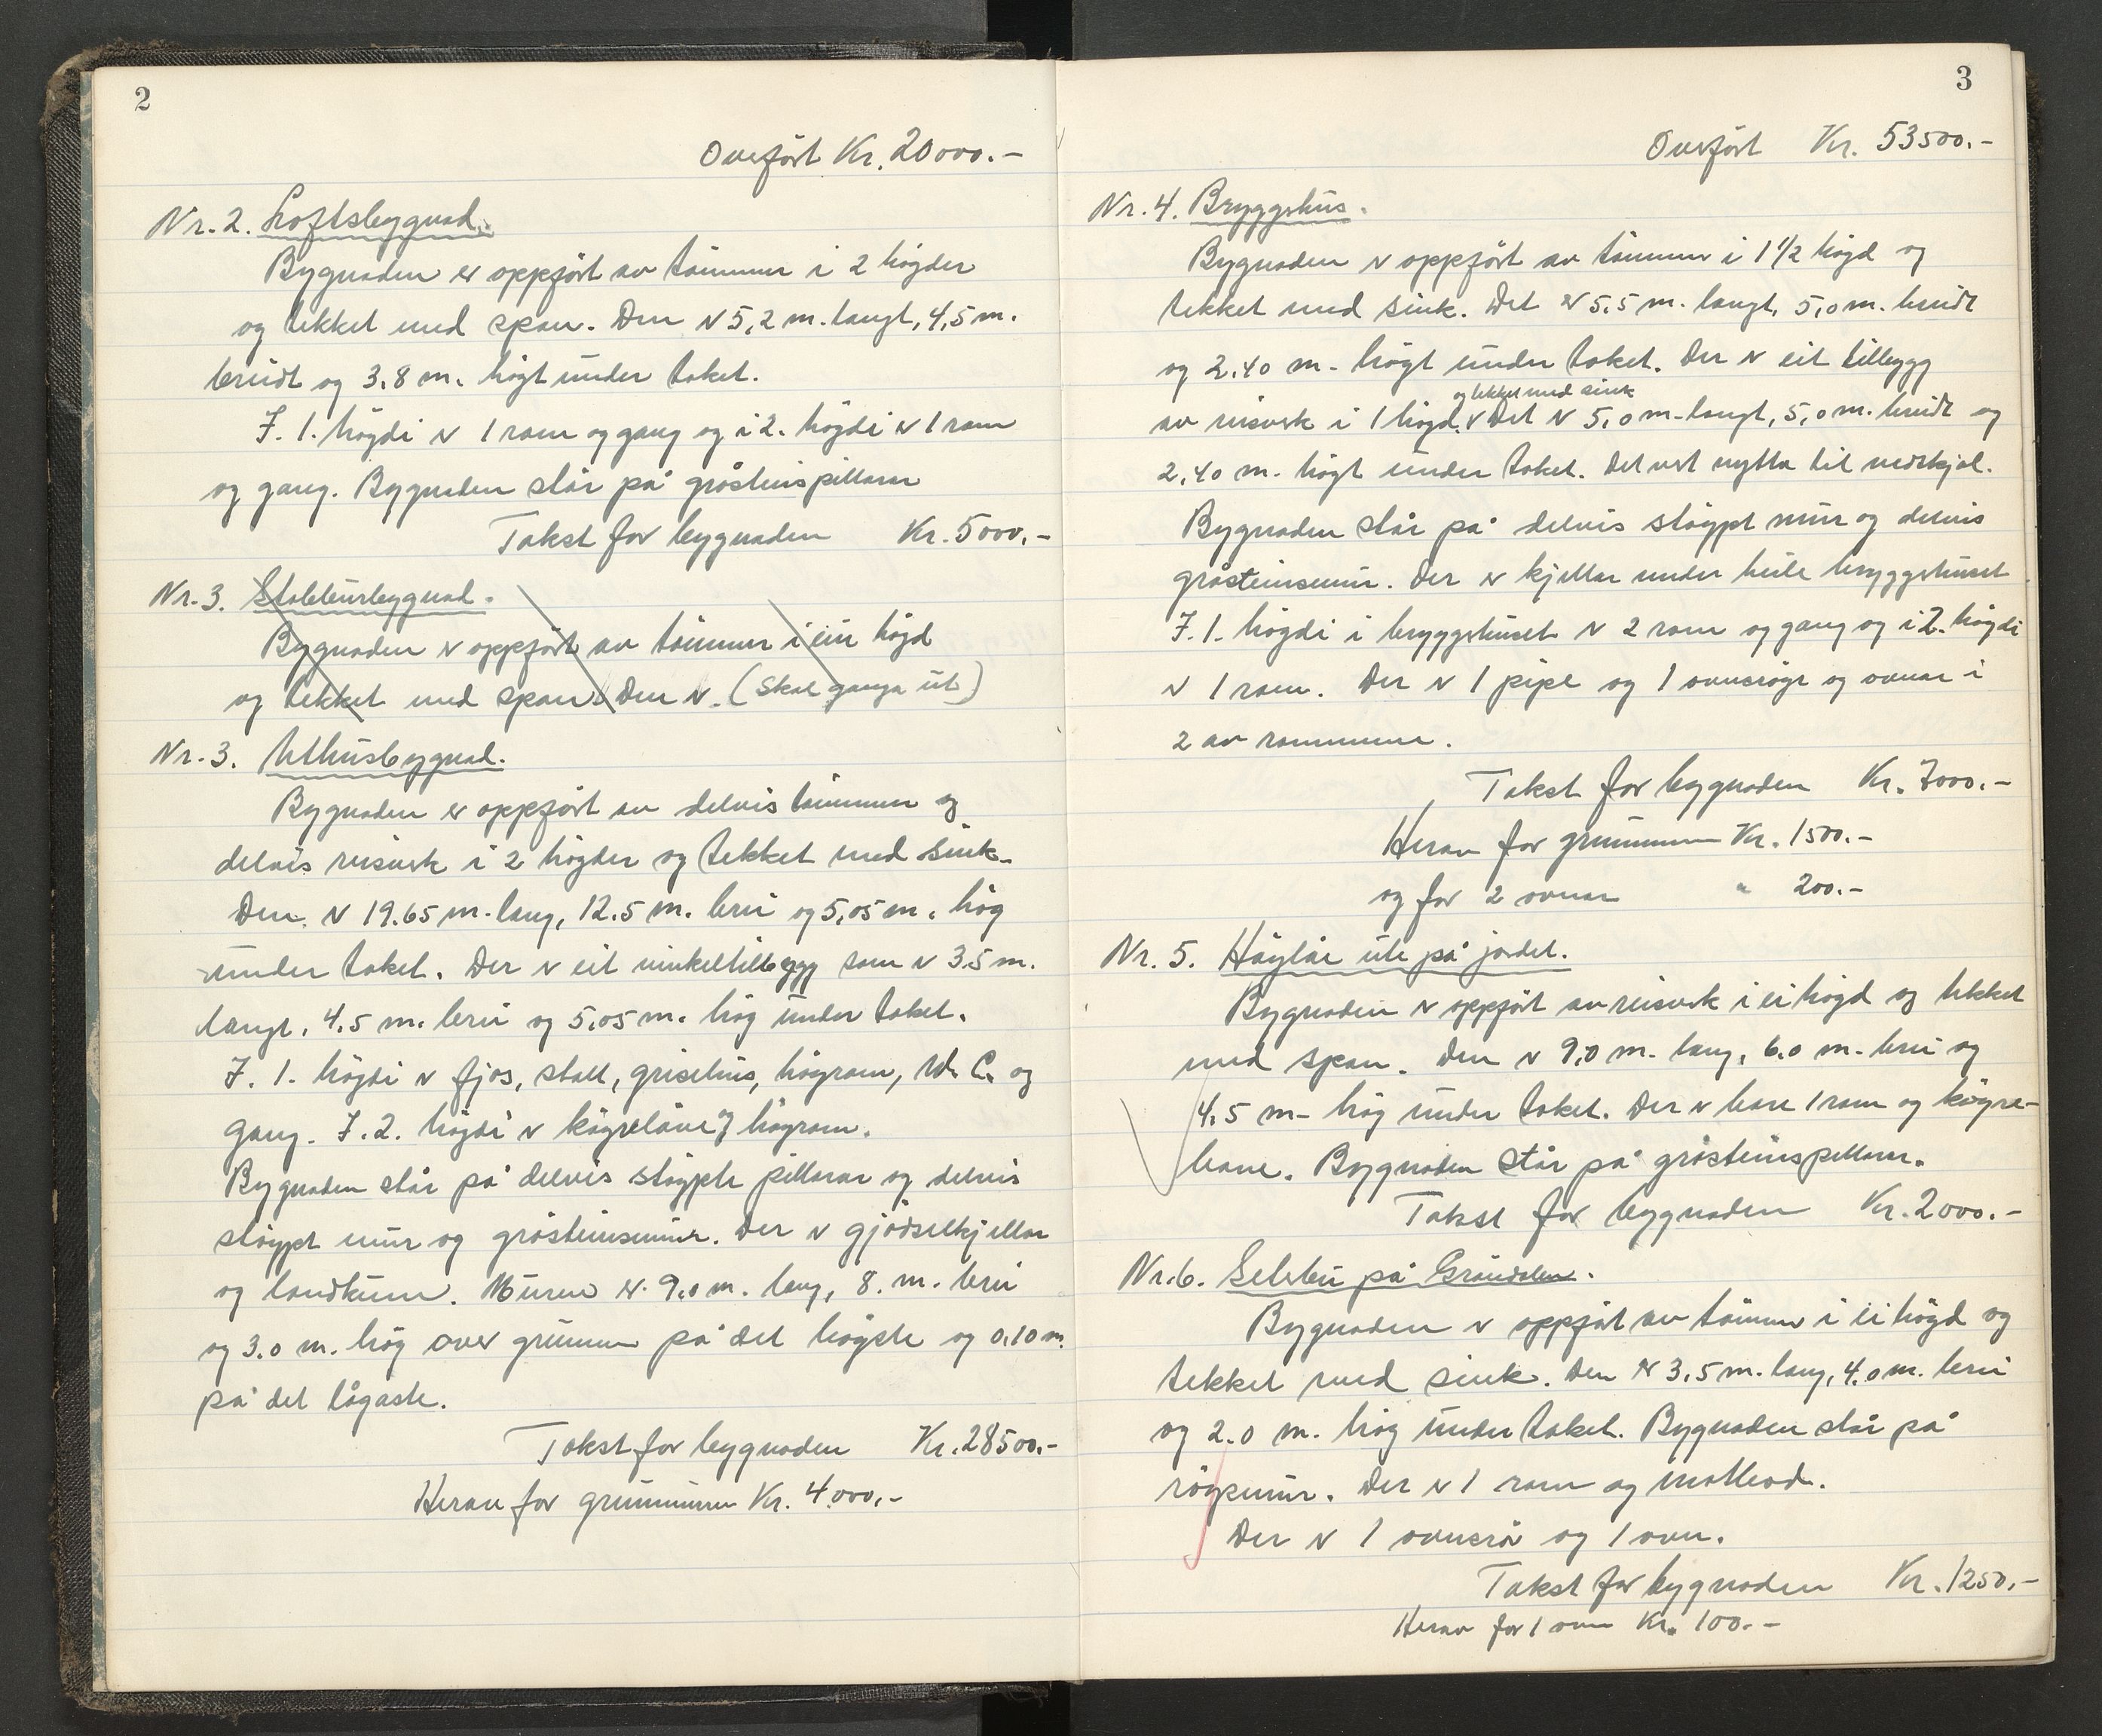 2
Overført Kr. 20000.-
Nr. 2. Loftsbygnad.
Bygnaden er oppført av tømmer i 2 høgder
og tekket med spon. Den er 5,2 m. langt, 4,5 m.
breidt og 3.8 m. høgt under taket.
I. 1. høgdi er 1 rom og gang og i 2. høgdi er 1 rom
og gang. Bygnaden står på gråsteinspillarar
Takst for bygnaden Kr. 5000.-
Nr. 3. Stabbursbygnad.
Bygnaden er oppført av tømmer i ein høgd
og tekket med spon. Den er. (Skal ganga ut)
Nr. 3. Uthusbygnad.
Bygnaden er oppført av delvis tømmer og
delvis reisverk i 2 høgder og tekket med sink.
Den er 19.65 m. lang, 12.5 m. brei og 5,05 m. høg
under taket. Der er eit vinkeltilbygg som er 3.5 m.
langt, 4,5 m. brei og 5,05 m. høg under taket.
I. 1. høgdi er fjos, stall, grisehus, høyrom, W.C. og
gang. I. 2. høgdi er køyrelåve og høyrom.
Bygnaden står på delvis støypte pillarar og delvis
støypt mur og gråsteinsmur. Der er gjødselkjellar
og landkum. Muren er 9,0 m. lang, 8. m. brei
og 3.0 m. høg over grunnen på det høgste og 0.10 m.
på det lågaste.
Takst for bygnaden Kr. 28500.-
Herav for grunnmuren Kr. 4.000.-
3
Overført Kr. 53500.-
Nr. 4. Bryggshus.
Bygnaden er oppført av tømmer i 1 1/2 høgd og
tekket med sink. Det er 5,5 m. langt, 5,0 m. breidt
og 2.40 m. høgt under taket. Der er eit tilbygg
og tekket med sink
av reisverk i 1 høgd. v Det er 5,0 m. langt, 5,0 m. breidt og
2,40 m. høgt under taket. Det vert nytta til vedskjol.
Bygnaden står på delvis støypt mur og delvis
gråsteinsmur. Der er kjellar under heile bryggshuset
I. 1. høgdi i bryggshuset er 2 rom og gang og i 2. høgdi
er 1 rom. Der er 1 pipe og 1 omnsrøyr og ovnar i
2 av rommene.
Takst for bygnaden Kr. 7000.-
Herav for grunnmuren Kr. 1500.-
og for 2 ovnar " 200.-
Nr. 5. Høyløe ute på jordet.
Bygnaden er oppført av reisverk i ei høgd og tekket
med spon. Den er 9,0 m. lang, 6.0 m. brei og
4,5 m. høg under taket. Der er bare 1 rom og køyre-
bane. Bygnaden står på gråsteinspillarar.
Takst for bygnaden Kr. 2000.-
Nr. 6. Selebu på Grøndalen.
Bygnaden er oppført av tømmer i ei høgd og
tekket med sink. Den er 3,5 m. lang, 4.0 m. brei
og 2.0 m. høg under taket. Bygnaden står på
røysmur. Der er 1 rom og matbod.
Der er 1 ovnsrør og 1 ovn.
Takst for bygnaden Kr. 1250.-
Herav for 1 ovn Kr. 100.-